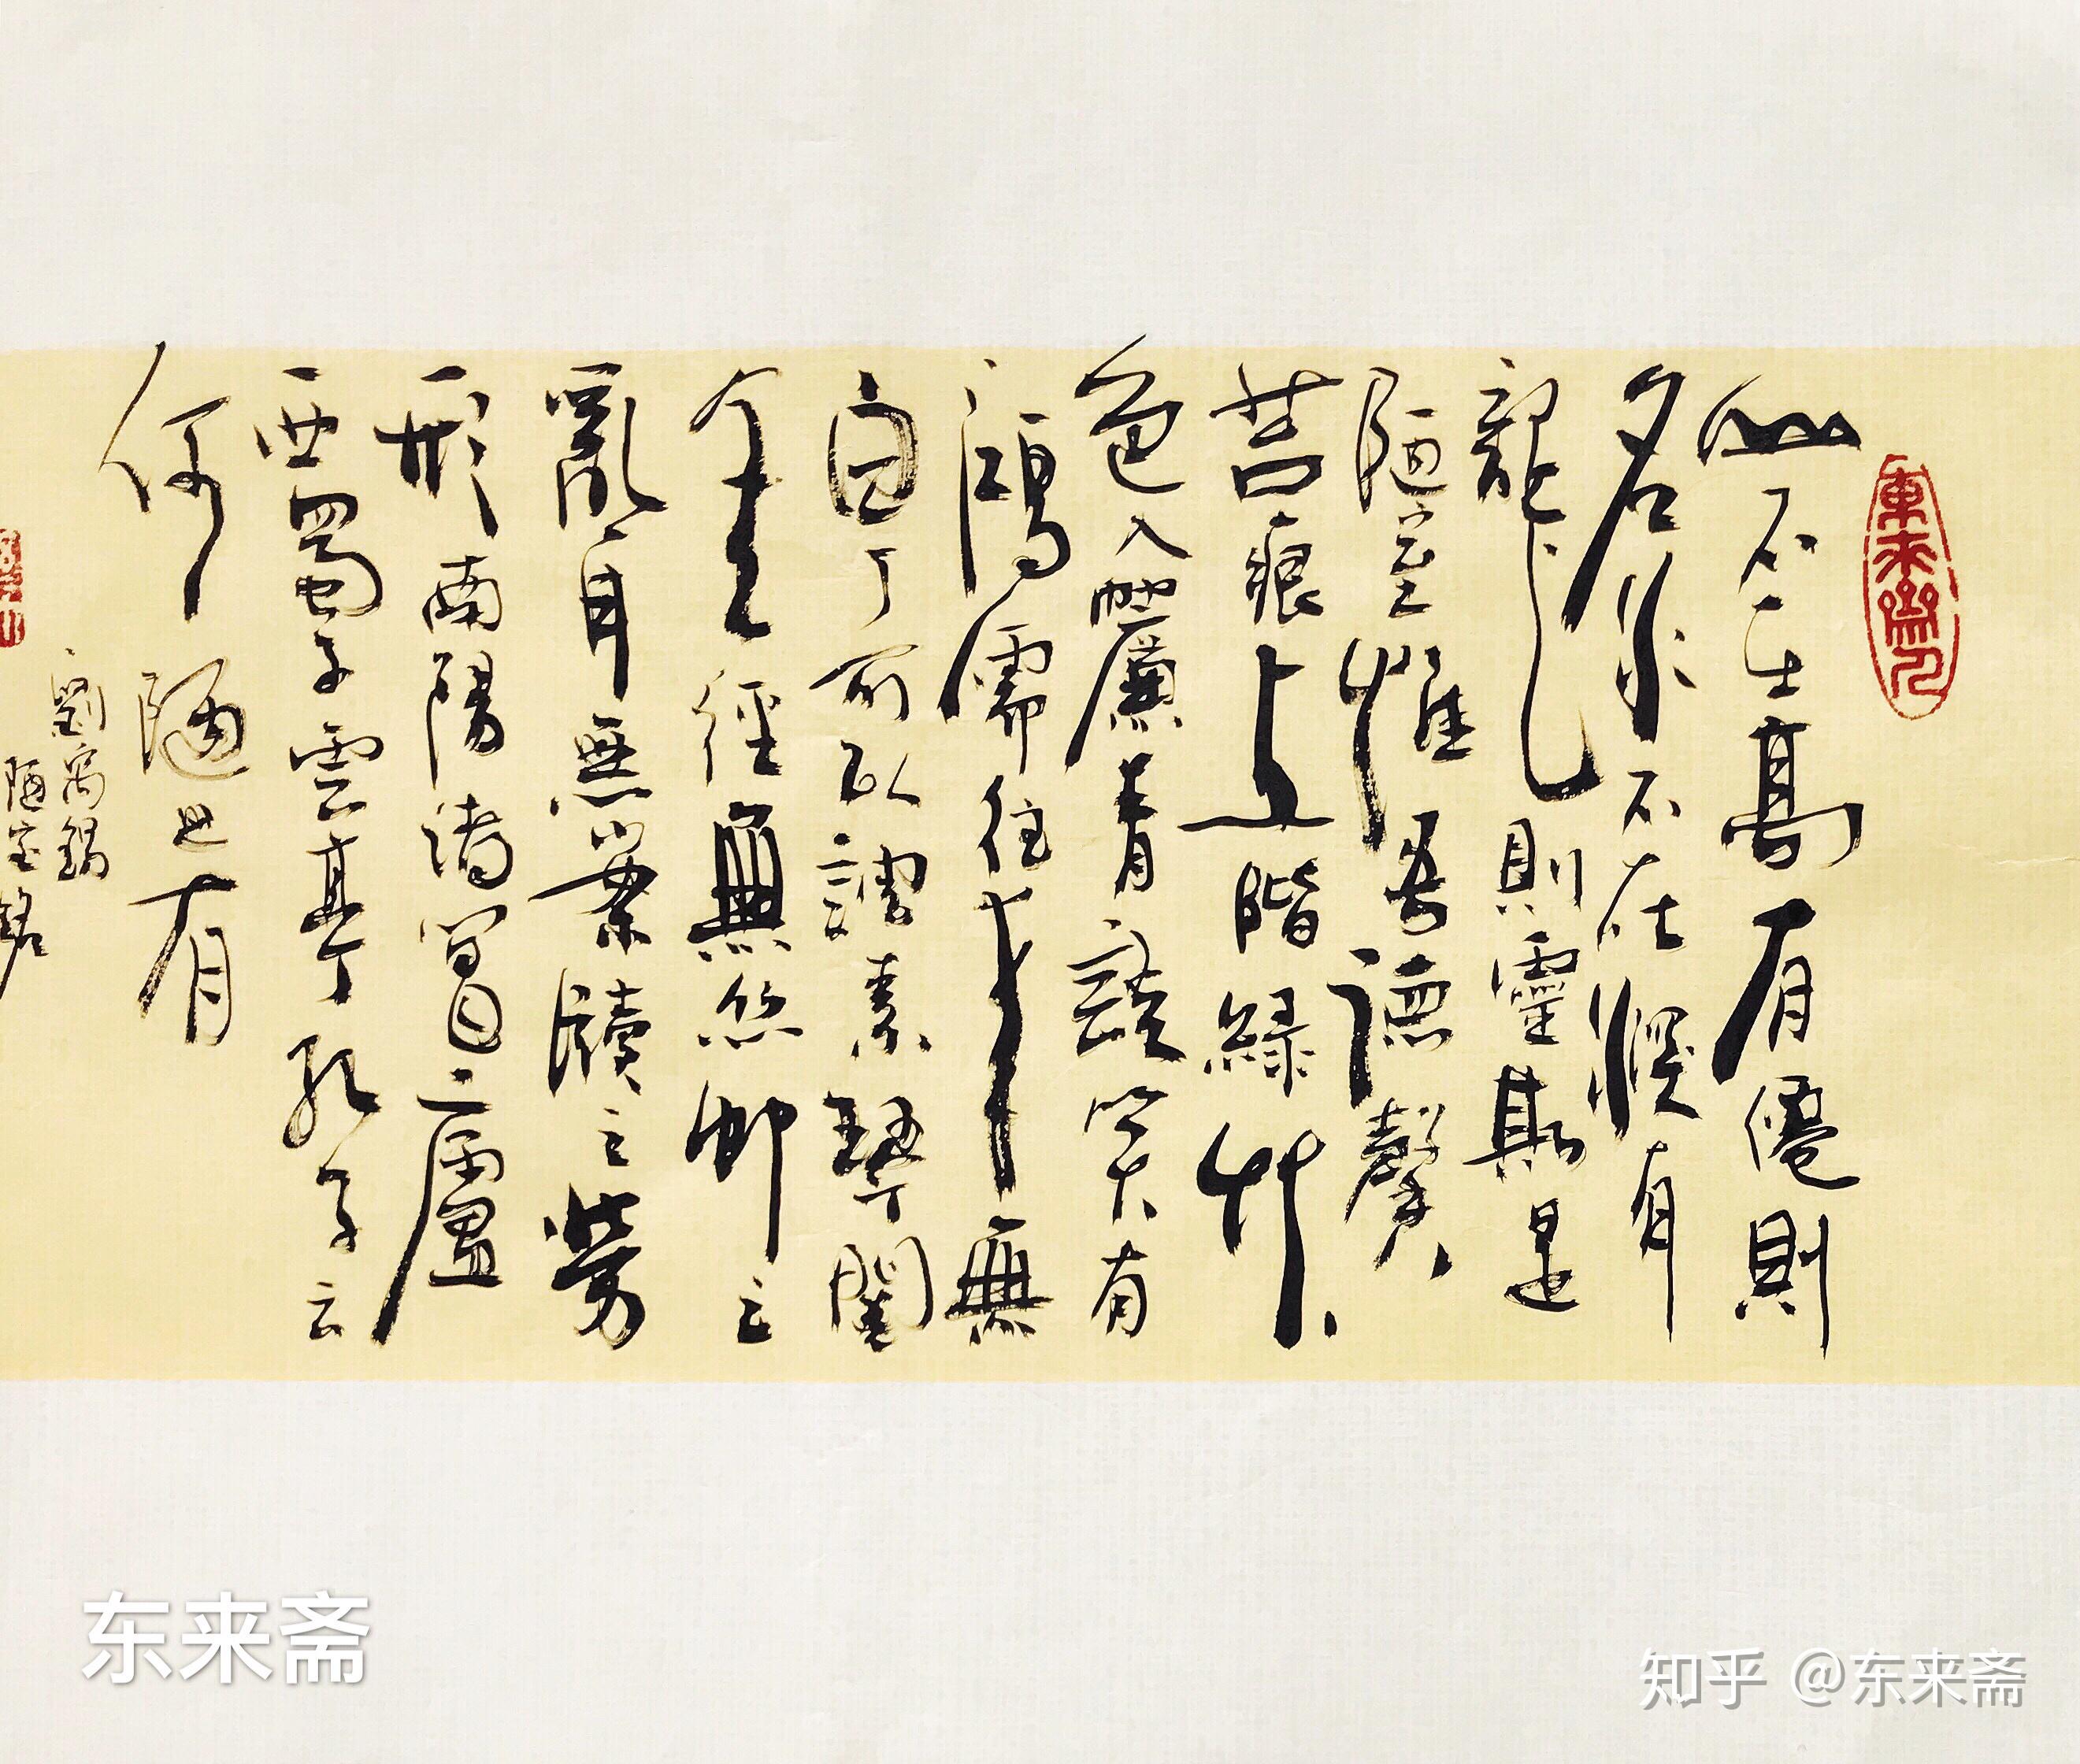 東來齋印
山不在高有僊則
名水不在深有
龍則靈斯是
陋室惟吾德馨
苔痕上階緑艸
色入簾青談笑有
鴻儒往來無
白丁可以調素琴閱
金經無絲竹之
亂耳無案牘之勞
形南陽諸葛廬
西蜀子雲亭孔子云
何陋之有
劉禹錫
陋室銘
东来斋
知乎 @东来斋